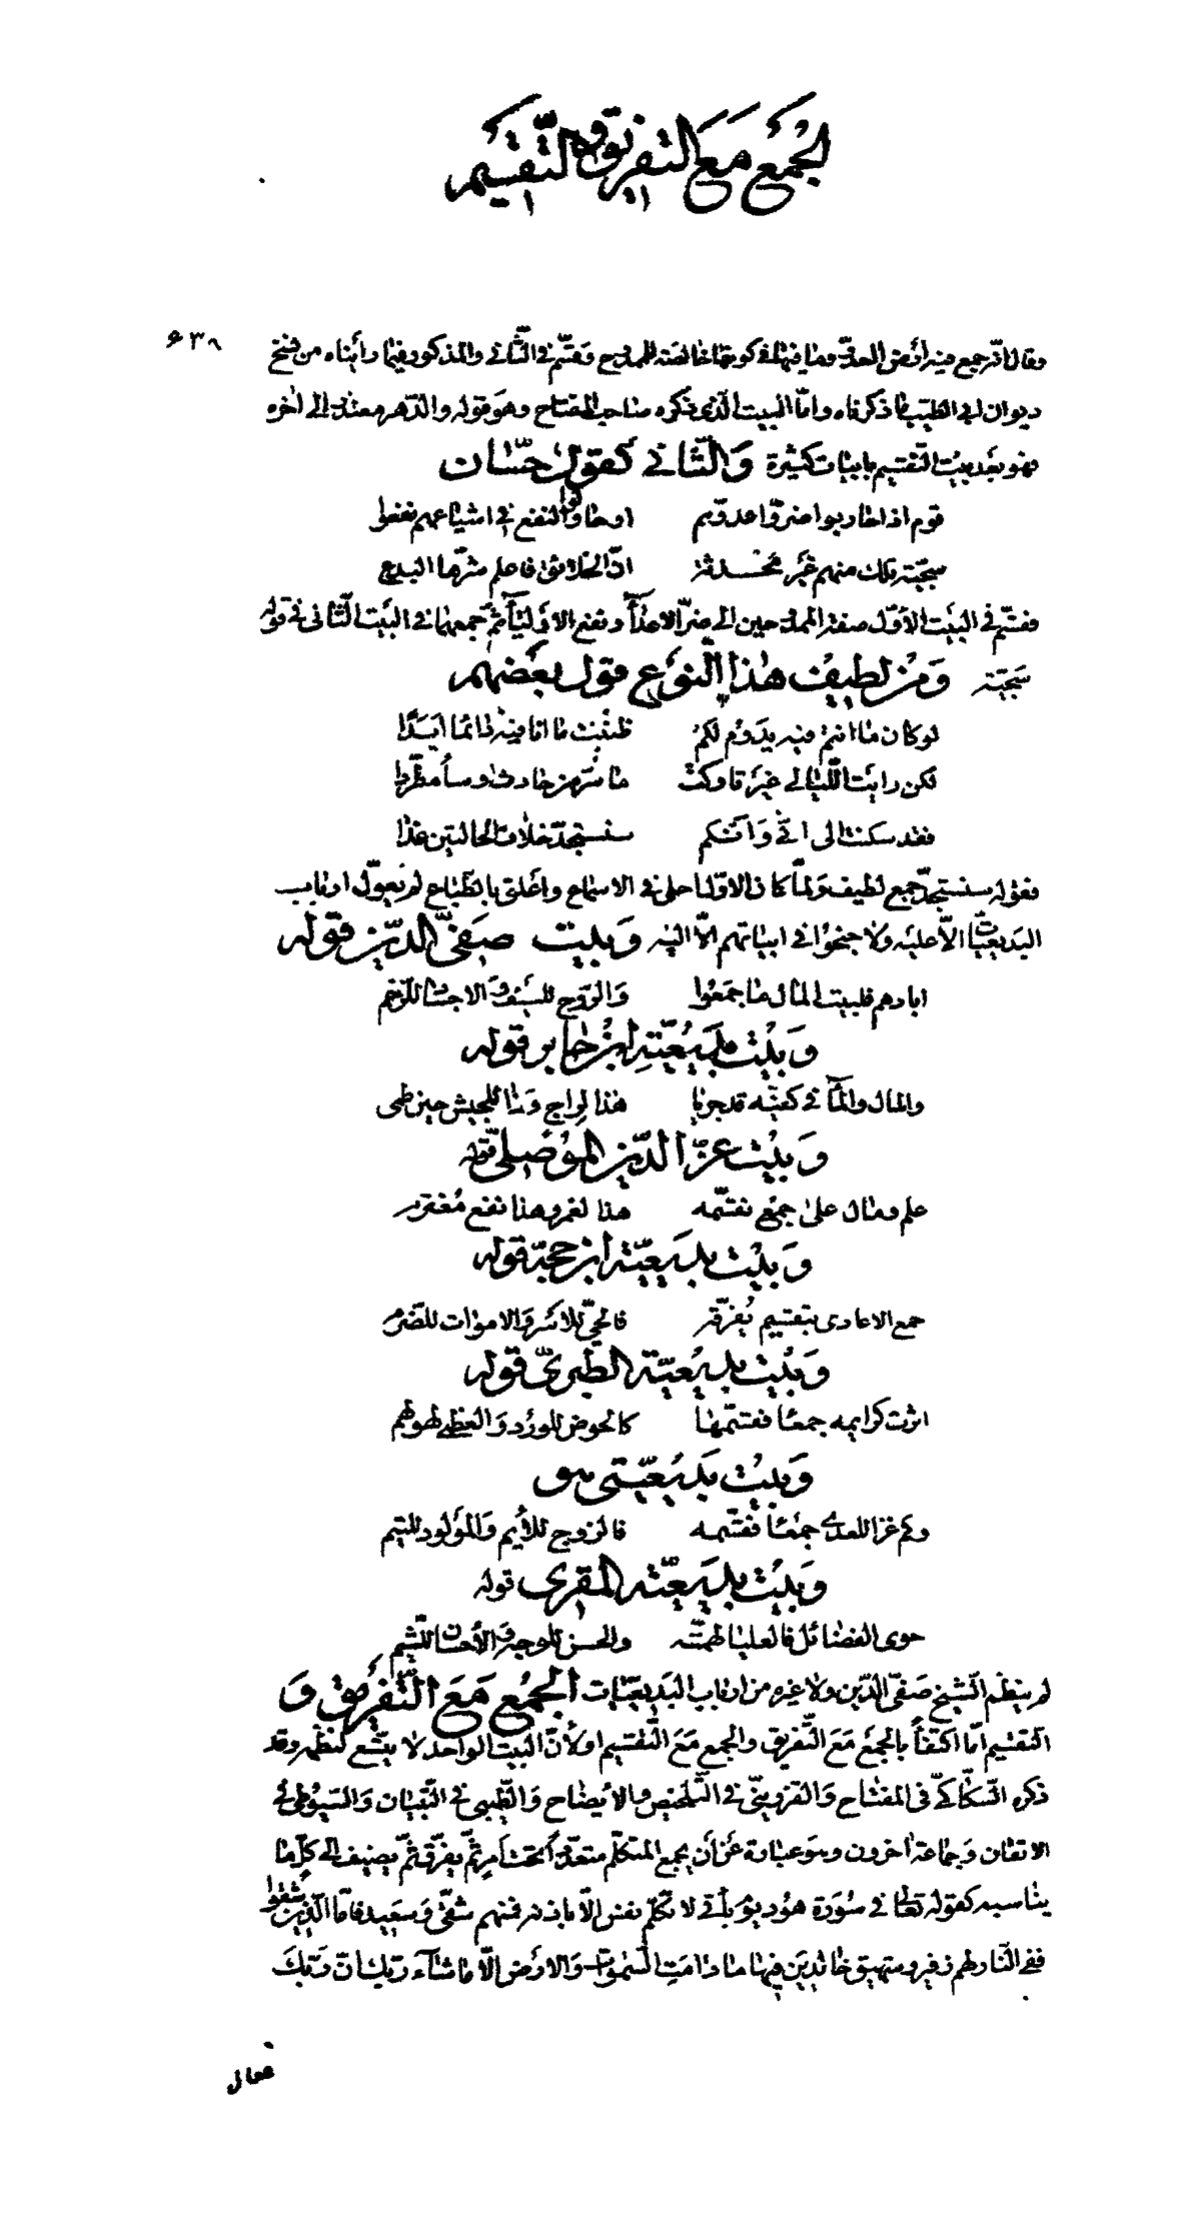 الجمع مع التفريق والتقسيم
٦٣٨
وقال انه جمع فيه ارض العدو وما فيها في كونها خالصة للممدوح وقسّم في الثّاني والمذكور فيما رأيناه من نسخ
ديوان ابي الطيّب ما ذكرناه وامّا البيت الّذي ذكره صاحب المفتاح وهو قوله والدّهر معتذر الى اخره
فهو بعد بيت التقسيم بابيات كثيرة والثّاني كقول حسّان
قوم اذا حاربوا ضرّوا عدوّهم او حاولوا النفع في اشياعهم نفعوا
سجيّة تلك منهم غير محدثة انّ الخلائق فاعلم شرّها البدع
فقسّم في البيت الأوّل صفة الممدوحين الى ضرّ الاعداء ونفع الاولياء ثمّ جمعهما في البيت الثّاني في قوله
سجيّة ومن لطيف هذا النوع قول بعضهم
لو كان ما انتم فيه يدوم لكم ظننت ما انا فيه دائما ابدًا
لكن رايت اللّيالي غير تاركة ما سرّ من حادث او ساء مطّردا
فقد سكنت الى انّي وانّكم سنستجدّ خلاف الحالتين غدا
فقوله سنستجدّ جمع لطيف ولمّا كان الاوّل احلى في الاسماع واعلق بالطّباع لم يعوّل ارباب
البديعيّات الاّ عليه ولا جنحوا في ابياتهم الاّ اليه وبيت صفيّ الدّين قوله
ابادهم فلبيت المال ما جمعوا والرّوح للسّيف والاجساد للرّخم
وبيت بديعيّة ابن جابر قوله
والمال والماء في كفّيه قد جريا هذا لراج وذا للجيش حين ظمي
وبيت عزّ الدّين الموصلي قوله
علم ومال على جمع تقسّمه هذا لغمر وهذا نفع مغترم
وبيت بديعيّة ابن حجّة قوله
جمع الاعادي بتقسيم يفرّقه فالحيّ للاسر والاموات للضّرم
وبيت بديعيّة الطبريّ قوله
اثرت كرايمه جمعا فقسّمها كالحوض للورد والعظمى لهولهم
وبيت بديعيّتي هو
وكم غزا للعدى جمعًا فقسّمه فالزوج للأيم والمولود لليتم
وبيت بديعيّة المقري قوله
حوى الفضائل فالعليا لهمّته والحسن للوجه والأحسان للشّيم
لم ينظم الشيخ صفيّ الدّين ولا غيره من ارباب البديعيّات الجمع مع التّفريق و
التقسيم امّا اكتفاءً بالجمع مع التّفريق والجمع مع التّقسيم او لأنّ البيت الواحد لا يتّسع لنظمه وقد
ذكره السّكّاكيّ في المفتاح والقزوينيّ في التّلخيص والايضاح والطّيبي في التّبيان والسّيوطي في
الاتقان وجماعة اخرون وهو عبارة عن أن يجمع المتكلّم متعدّدا تحت امر ثمّ يفرّق ثمّ يضيف الى كلّ ما
يناسبه كقوله تعالى في سورة هود يوم يأتي لا تكلّم نفس الّا باذنه فمنهم شقيّ وسعيد فامّا الّذين شقوا
ففي النّار لهم زفير وشهيق خالدين فيها ما دامت السّموات والارض الّا ما شاء ربّك انّ ربّك
فعال